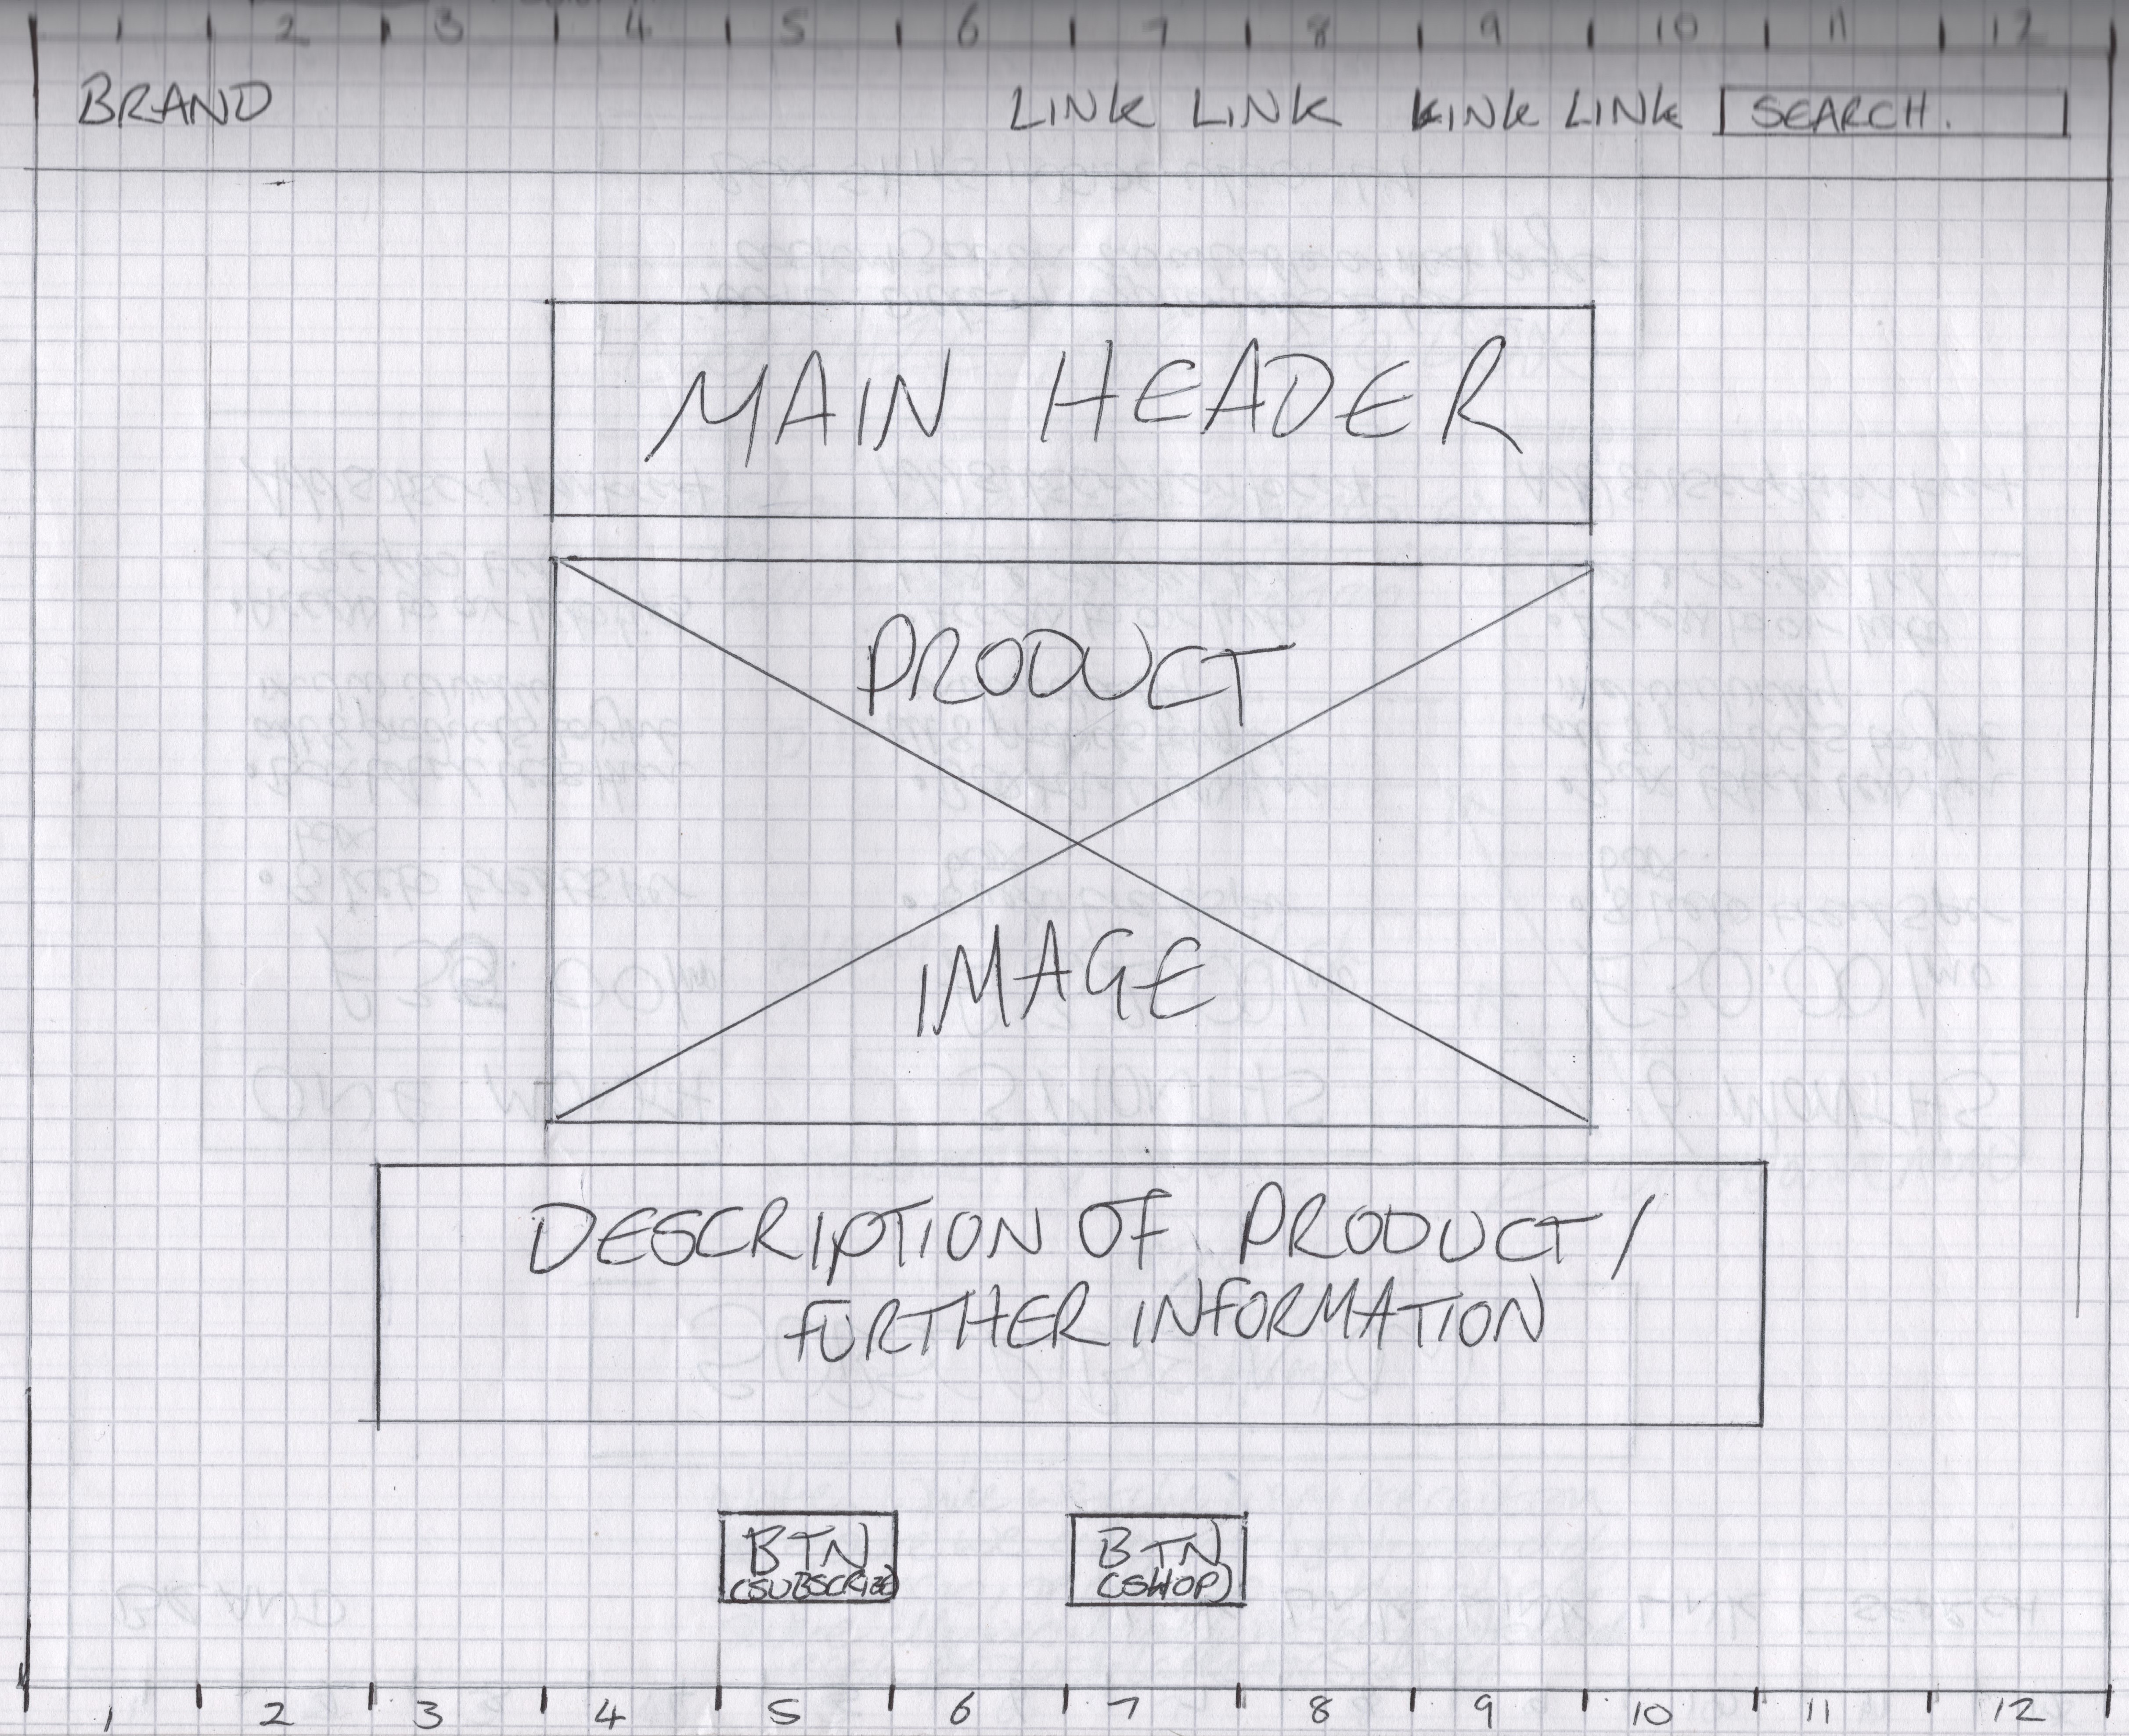 2 3 4 5 6 7 8 9 10 11 12
BRAND LINK LINK LINK LINK SEARCH.
MAIN HEADER
PRODUCT
IMAGE
DESCRIPTION OF PRODUCT /
FURTHER INFORMATION
BTN BTN
(SUBSCRIBE) (SHOP)
1 2 3 4 5 6 7 8 9 10 11 12